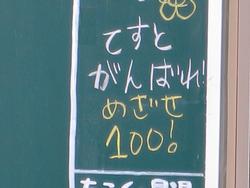 てすと
がんばれ!
めざせ
100!